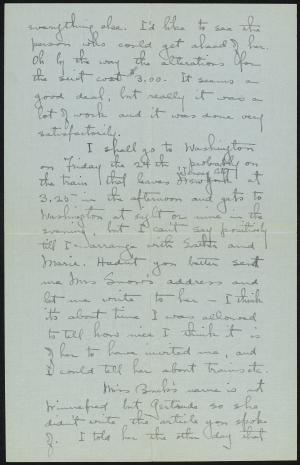 everything else. I'd like to see the
person who could get ahead of her.
Oh by the way the alterations for
the suit cost $3.00. It seems a
good deal, but really it was a
lot of work and it was done very
satisfactorily.
I shall go to Washington
on Friday the 24th, probably on
the train that leaves Jersey City New York at
3.25 in the afternoon and gets to
Washington at eight or nine in the
evening, but I can't say positively
till I arrange with and
Marie. Hadn't you better send
me Mrs Snow's address and
let me write to her – I think
it's about time I was allowed
to tell how nice I think it is
of her to have invited me, and
I could tell her about trains etc.
Miss name is not
Winnefred but Gertrude so she
didn't write the article you spoke
of. I told her the other day that